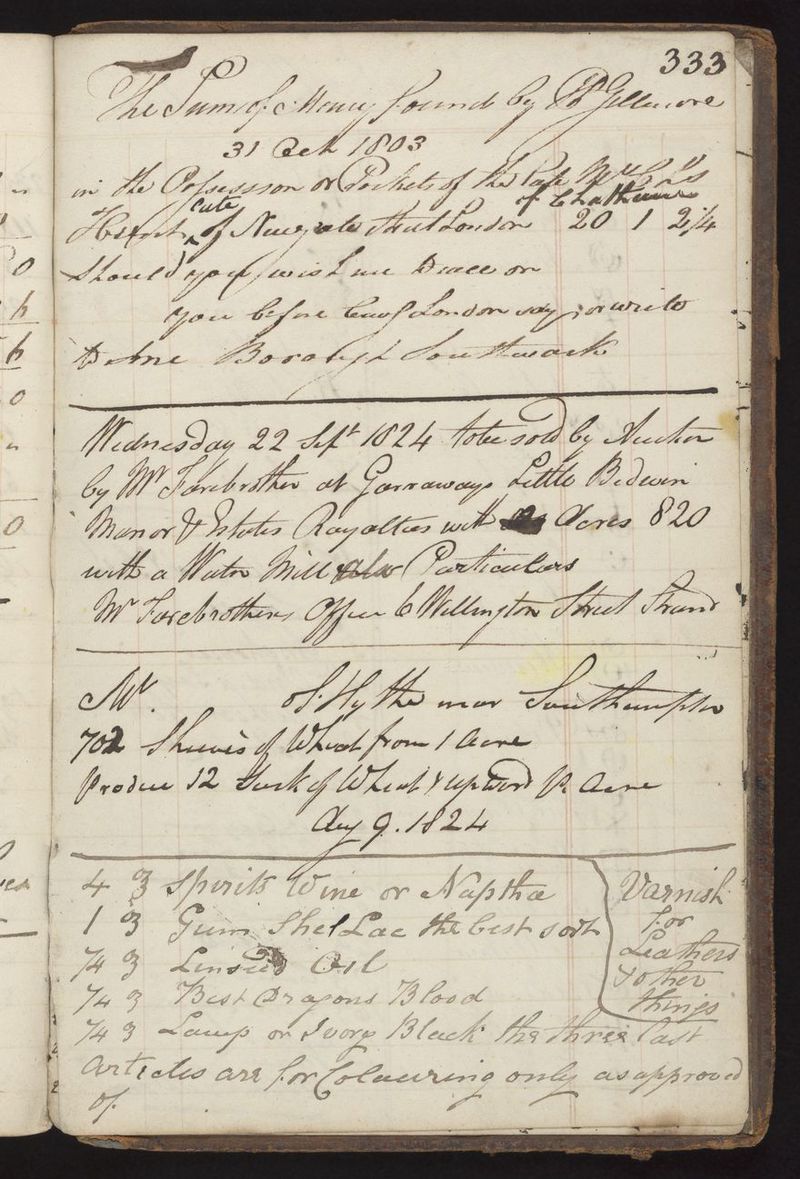 333
The Sum of Money found by Gillmore
31 Oct 1803
in the Possession or Pockets of the late Mr
of Chatham
cute
of Newgate Street London 20 1 2 1/4
Should you wish me to call on
you before London say, or write
to me Borough Southwark
Wednesday 22 Sept 1824 to be sold by Auction
by Mr Farebrother at Garraways Little Bedwin
Manor & Estates Royalties with Acres 820
with a Water Mill Particulars
Mr Farebrothers Office 6 Wellington Street Strand
Mr. of Hythe near Southampton
702 Sheives of Wheat from 1 Acre
Produce 12 Sack of Wheat & upward Pr Acre
Aug 9. 1824
4 ℥ Spirits Wine or Naptha
1 ℥ Gum Shel Lac the best sort
1/4 ℥ Linseed Oil
1/4 ℥ Best Dragons Blood
1/4 ℥ Lamp or Ivory Black the three last
Articles are for Colouring only as approved
of
Varnish
for
Leathers
& other
things